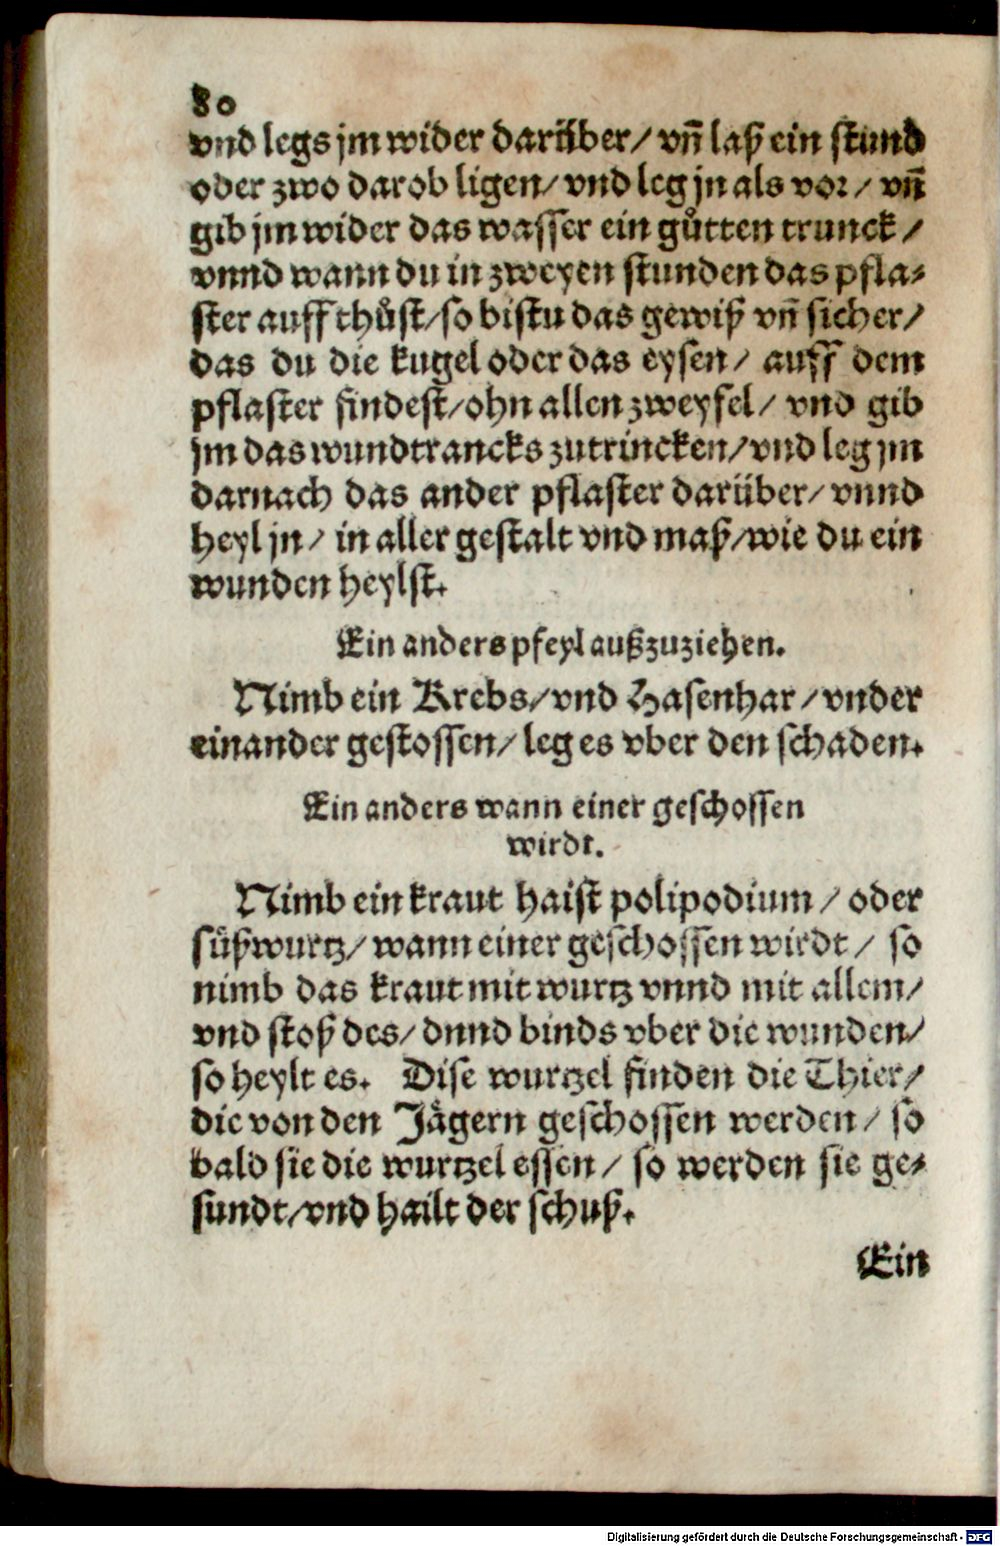 80
vnd legs jm wider darüber/ vn̄ laß ein stund
oder zwo darob ligen/ vnd leg jn als vor/ vn̄
gib jm wider das wasser ein gůtten trunck/
vnnd wann du in zweyen stunden das pfla⸗
ster auff thůst/ so bistu das gewiß vn̄ sicher/
das du die kugel oder das eysen/ auff dem
pflaster findest/ ohn allen zweyfel/ vnd gib
jm das wundtrancks zutrincken/ vnd leg jm
darnach das ander pflaster darüber/ vnnd
heyl jn/ in aller gestalt vnd maß/ wie du ein
wunden heylst.
Ein anders pfeyl außzuziehen.
Nimb ein Krebs/ vnd Hasenhar/ vnder
einander gestossen/ leg es vber den schaden.
Ein anders wann einer geschossen
wirdt.
Nimb ein kraut haist polipodium/ oder
süßwurtz/ wann einer geschossen wirdt/ so
nimb das kraut mit wurtz vnnd mit allem/
vnd stoß des/ dnnd binds vber die wunden/
so heylt es. Dise wurtzel finden die Thier/
die von den Jägern geschossen werden/ so
bald sie die wurtzel essen/ so werden sie ge⸗
sundt/ vnd hailt der schuß.
Ein
Digitalisierung gefördert durch die Deutsche Forschungsgemeinschaft - DFG